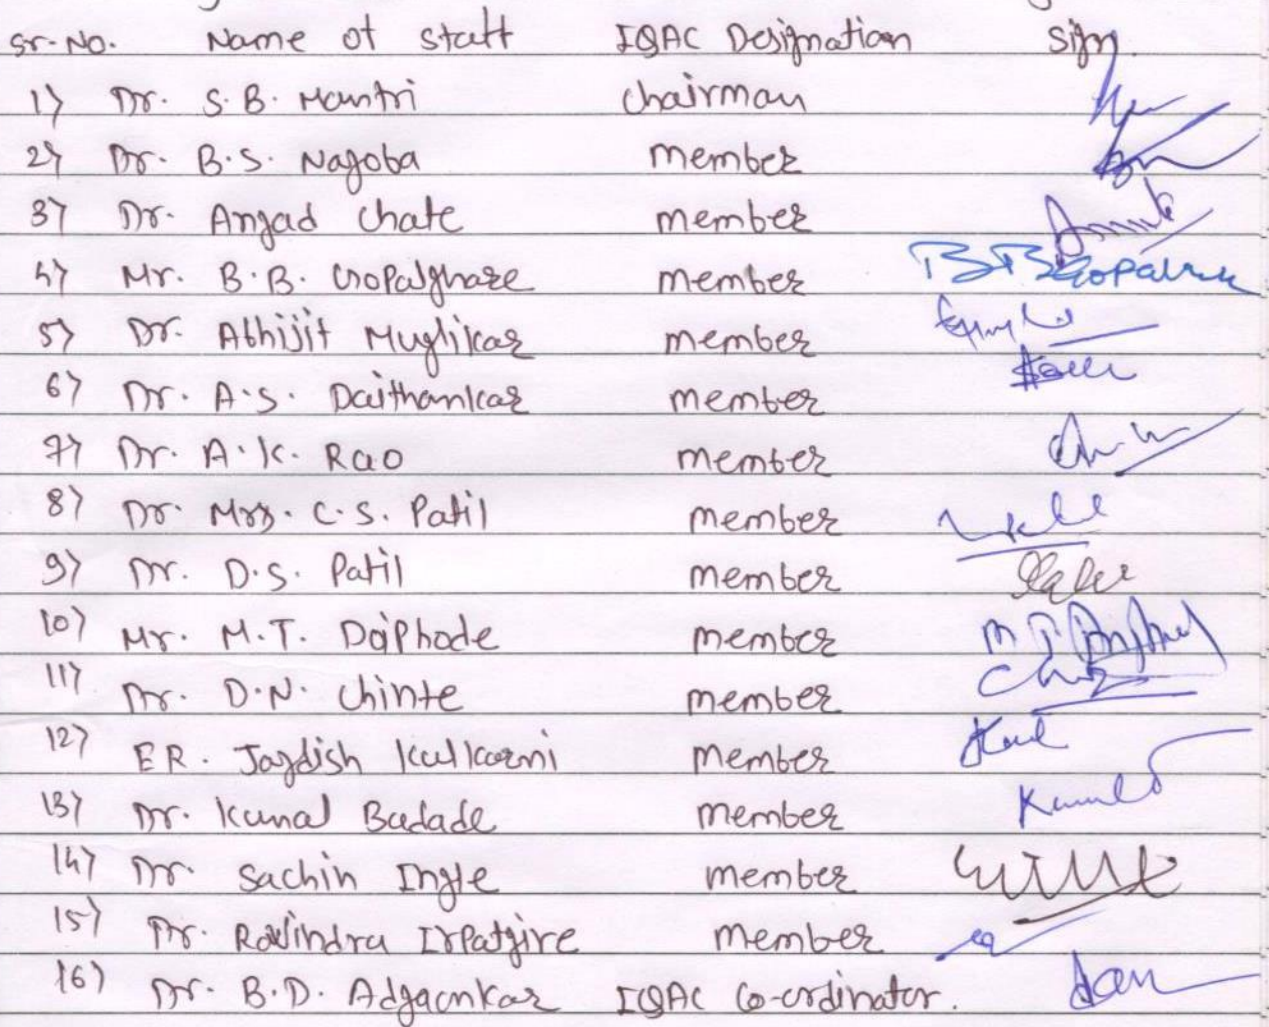 Sr. No. Name of staff IQAC Designation Sign
1) Dr. S.B. Mantri Chairman
2) Dr. B.S. Nagoba member
3) Dr. Angad Chate member
4) Mr. B.B. Gopalghare member B B Gopalghare
5) Dr. Abhijit Muglikar member
6) Dr. A.S. Daithankar member
7) Dr. A.K. Rao member
8) Dr. Mrs. C.S. Patil member
9) Dr. D.S. Patil member
10) Mr. M.T. Daiphode member
11) Dr. D.N. Chinte member
12) ER. Jagdish Kulkarni member
13) Dr. Kunal Badade member
14) Dr. Sachin Ingle member
15) Dr. Ravindra Irpatgire member
16) Dr. B.D. Adgaonkar IQAC Co-ordinator.